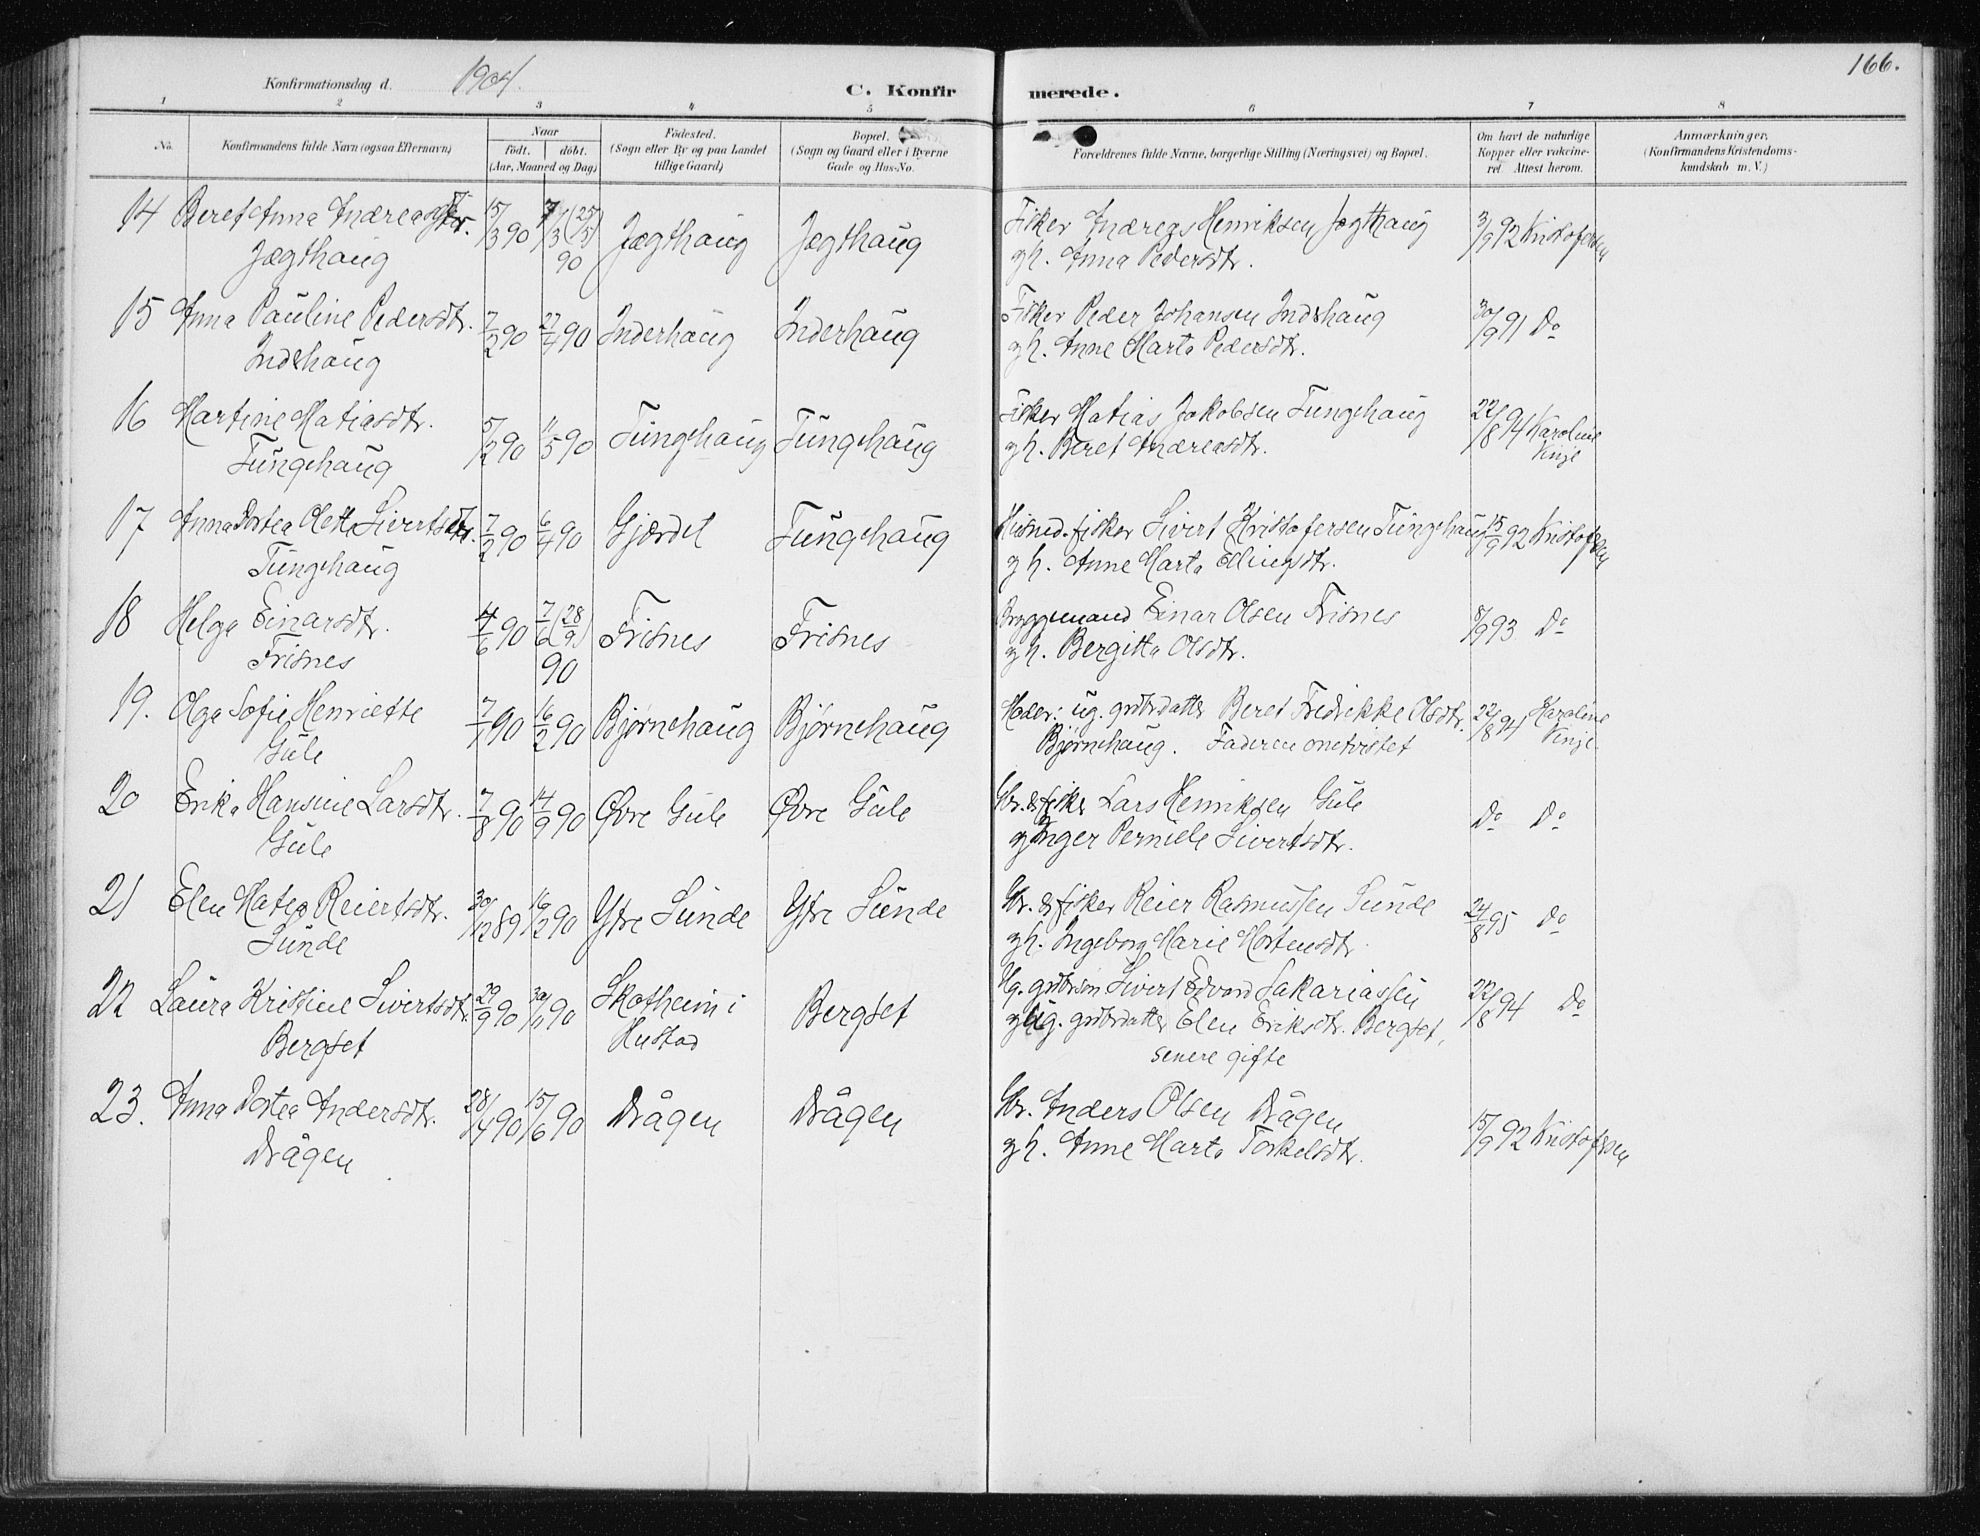 166.
Konfirmationsdag d. 1904.
C. Konfirmerede.
1 2 3 4 5 6 7 8
No.
Konfirmandens fulde Navn (ogsaa Efternavn)
Naar
født. døbt.
(Aar, Maaned og Dag)
Fødested.
(Sogn eller By og paa Landet
tillige Gaard)
Bopæl.
(Sogn og Gaard eller i Byerne
Gade og Hus-No.
Forældrenes fulde Navne, borgerlige Stilling (Næringsvei) og Bopæl.
Om havt de naturlige
Kopper eller vakcine-
ret Attest herom.
Anmærkninger.
(Konfirmandens Kristendoms-
kundskab m. V.)
14 Beret Anna Andreasdtr. 15/3 90 7/3 (25/5) 90 Jægthaug Jægthaug Fisker Andreas Henriksen Jægthaug 3/9 92 Kristofersen
Jægthaug gh. Anna Pedersdtr.
15 Anna Pauline Pedersdtr. 7/2 90 27/4 90 Inderhaug Inderhaug Fisker Peder Johansen Indehaug 30/9 91 Do
Indehaug gh. Anne Marta Pedersdtr.
16 Martine Matiasdtr. 5/2 90 11/5 90 Tungehaug Tungehaug Fisker Matias Jakobsen Tungehaug 22/8 94 Karoline Vinje
Tungehaug gh. Beret Andreasdtr.
17 Anna Dortea Olette Sivertsdtr. 7/2 90 6/4 90 Gjærdet Tungehaug Husmd. fisker Sivert Kristofersen Tungehaug 15/9 92 Kristofersen
Tungehaug gh. Anne Marta Ellingsdtr.
18 Helga Einarsdtr. 4/6 90 7/6 (28/9) 90 Frisnes Frisnes Bryggemand Einar Olsen Frisnes 8/9 93 Do
Frisnes gh. Bergitta Olsdtr.
19. Olga Sofie Henriette 7/1 90 16/2 90 Bjørnehaug Bjørnehaug Moder: ug. grdbrdatter Beret Fredrikke Olsdtr. 22/8 94 Karoline Vinje
Gule Bjørnehaug. Faderen
20 Erika Hansine Larsdtr. 7/8 90 14/9 90 Øvre Gule Øvre Gule Gbr. & fisker Lars Henriksen Gule Do Do
Gule g Inger Pernille Sivertsdtr.
21 Elen Matea Reiertsdtr. 30/12 89 16/2 90 Ytre Sunde Ytre Sunde Gbr. & fisker Reier Rasmussen Sunde 24/8 95 Do
Sunde gh. Ingeborg Marie Mortensdtr.
22 Laura Kristine Sivertsdtr. 29/9 90 30/11 90 Skotheim i Bergset Ug. grdbrsøn Sivert Edvard Sakariassen 22/8 94 Do
Bergset Hustad g ug. grdbrdatter Elen Eriksdtr. Bergset,
senere gifte
23. Anna Dortea Andersdtr. 28/4 90 15/6 90 Drågen Drågen Gbr. Anders Olsen Drågen 15/9 92 Kristofersen
Drågen gh. Anne Marta Torkelsdtr.